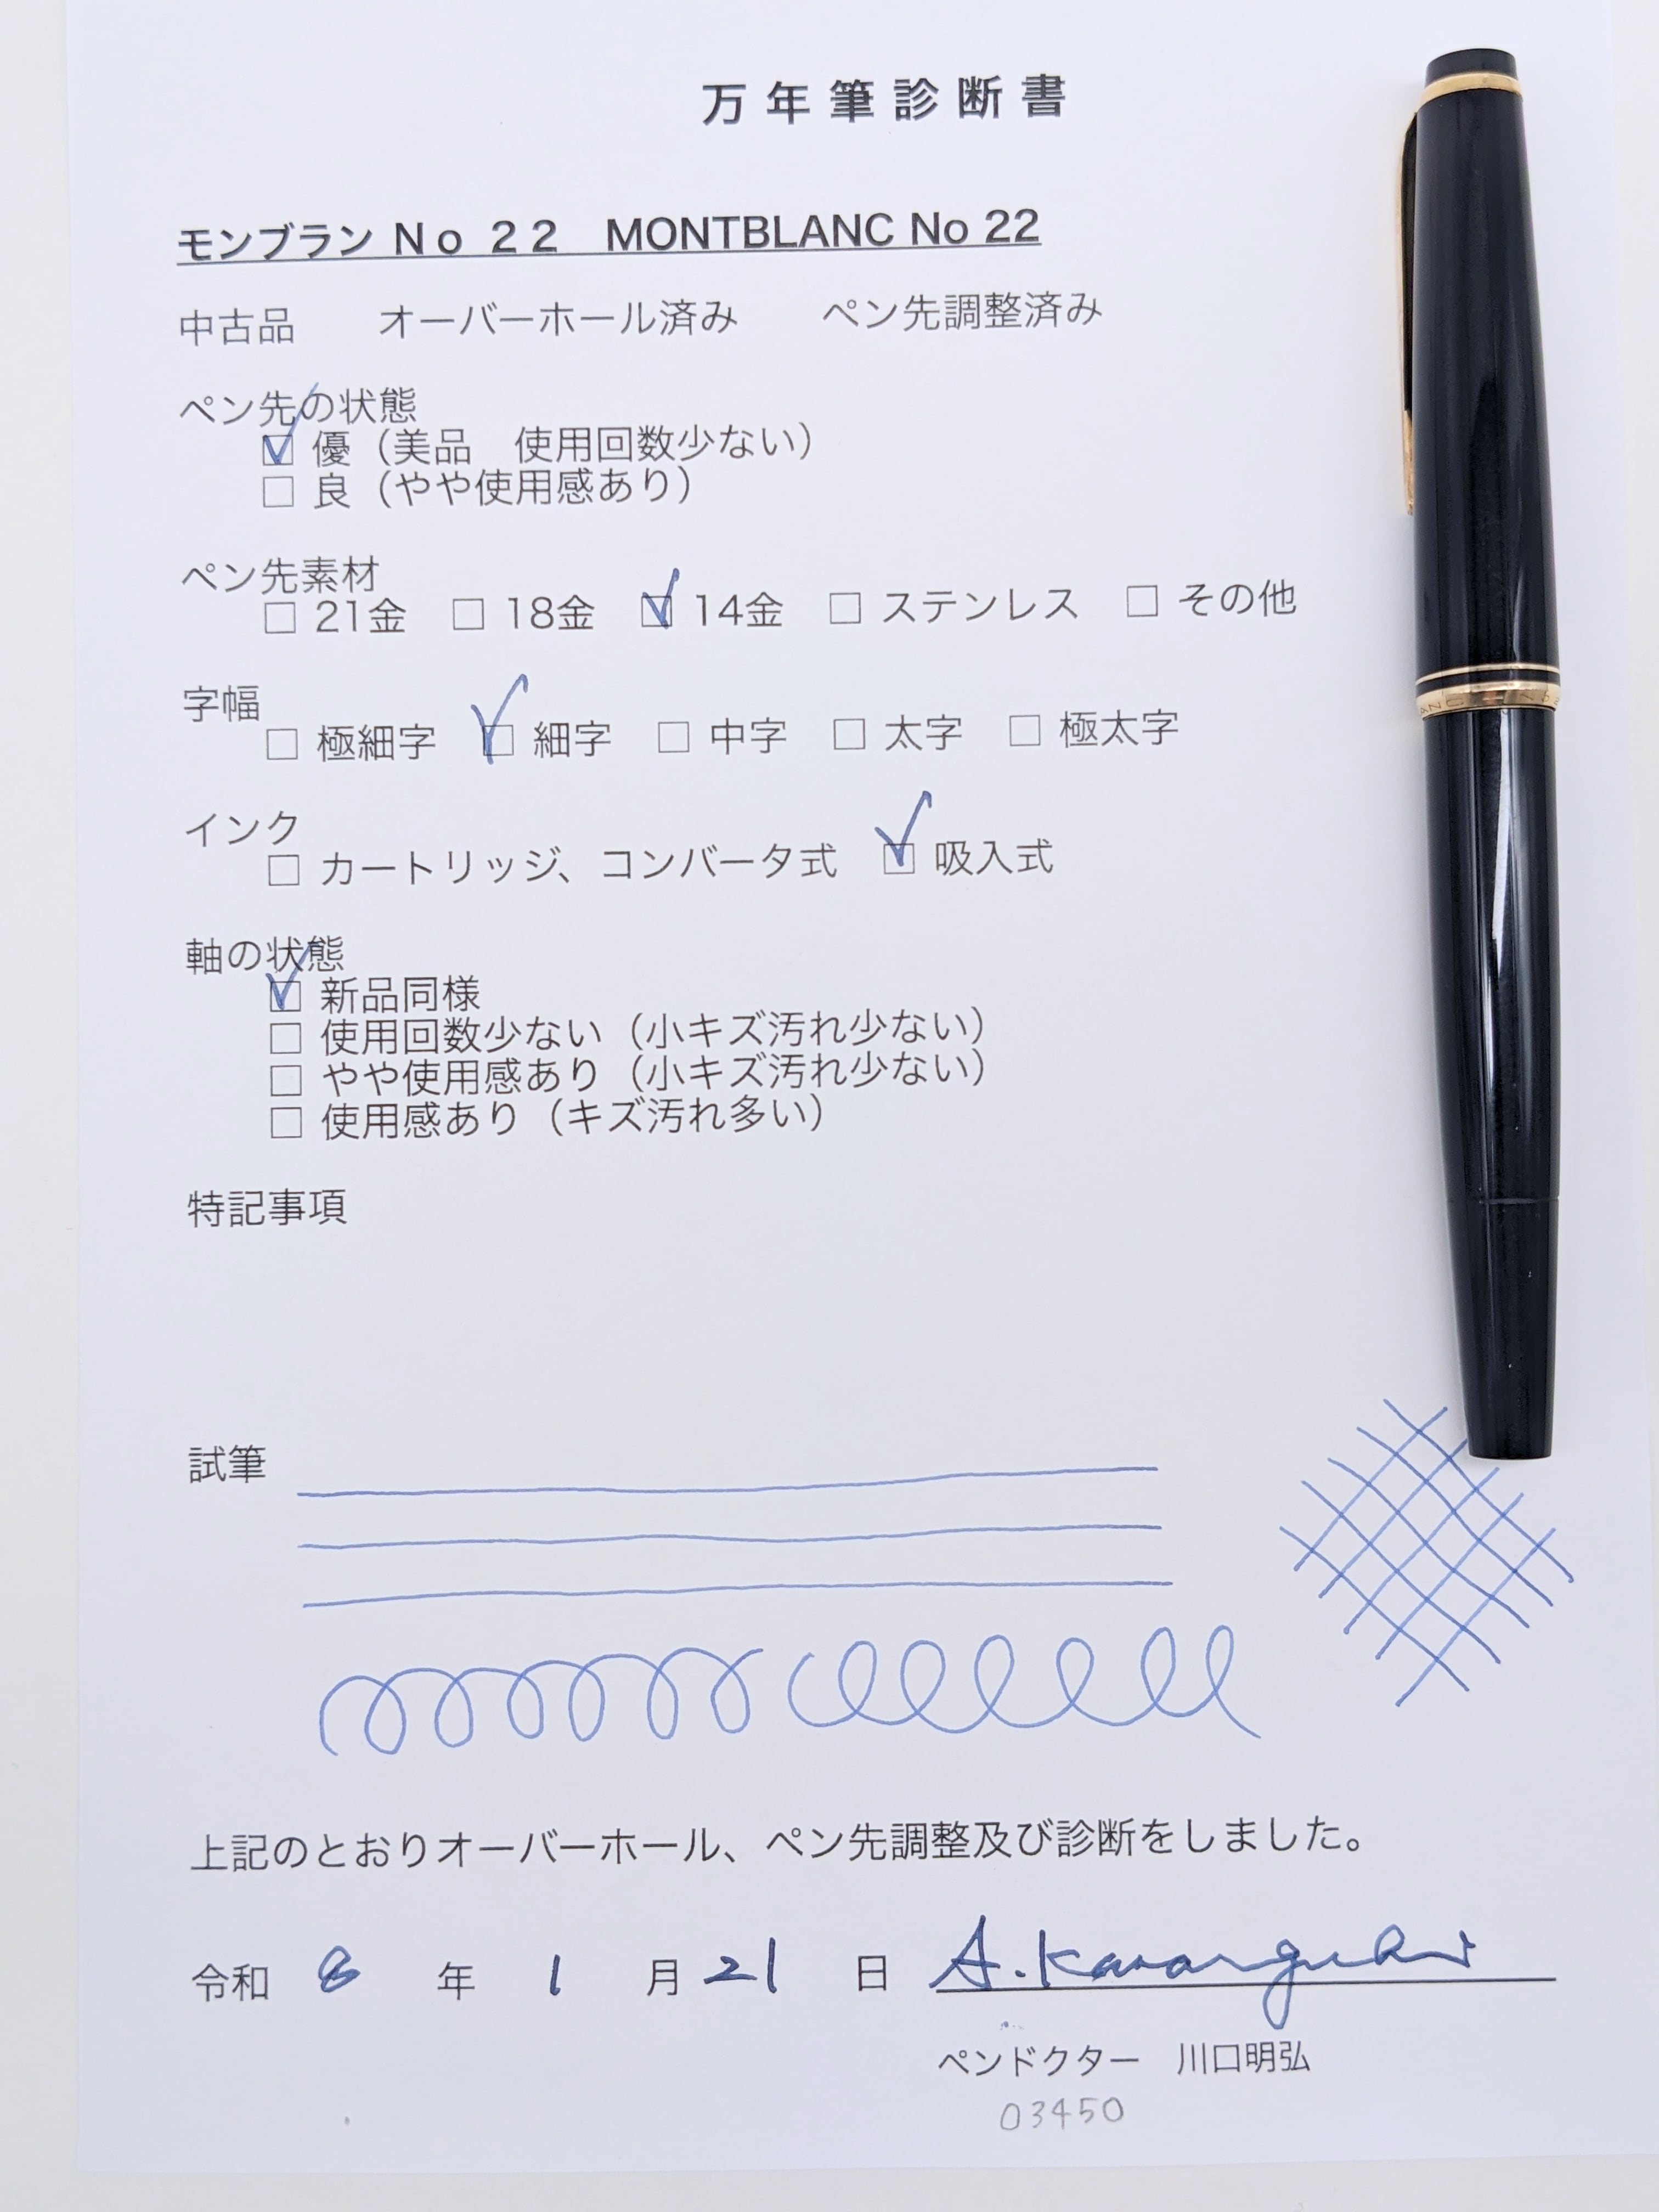 万年筆診断書
モンブラン No 22 MONTBLANC No 22
中古品 オーバーホール済み ペン先調整済み
ペン先の状態
☑ 優（美品 使用回数少ない）
☐ 良（やや使用感あり）
ペン先素材
☐ 21金 ☐ 18金 ☑ 14金 ☐ ステンレス ☐ その他
字幅
☐ 極細字 ☑ 細字 ☐ 中字 ☐ 太字 ☐ 極太字
インク
☐ カートリッジ、コンバータ式 ☑ 吸入式
軸の状態
☑ 新品同様
☐ 使用回数少ない（小キズ汚れ少ない）
☐ やや使用感あり（小キズ汚れ少ない）
☐ 使用感あり（キズ汚れ多い）
特記事項
試筆
上記のとおりオーバーホール、ペン先調整及び診断をしました。
令和 8 年 1 月 21 日 A. Kawaguchi
ペンドクター 川口明弘
03450